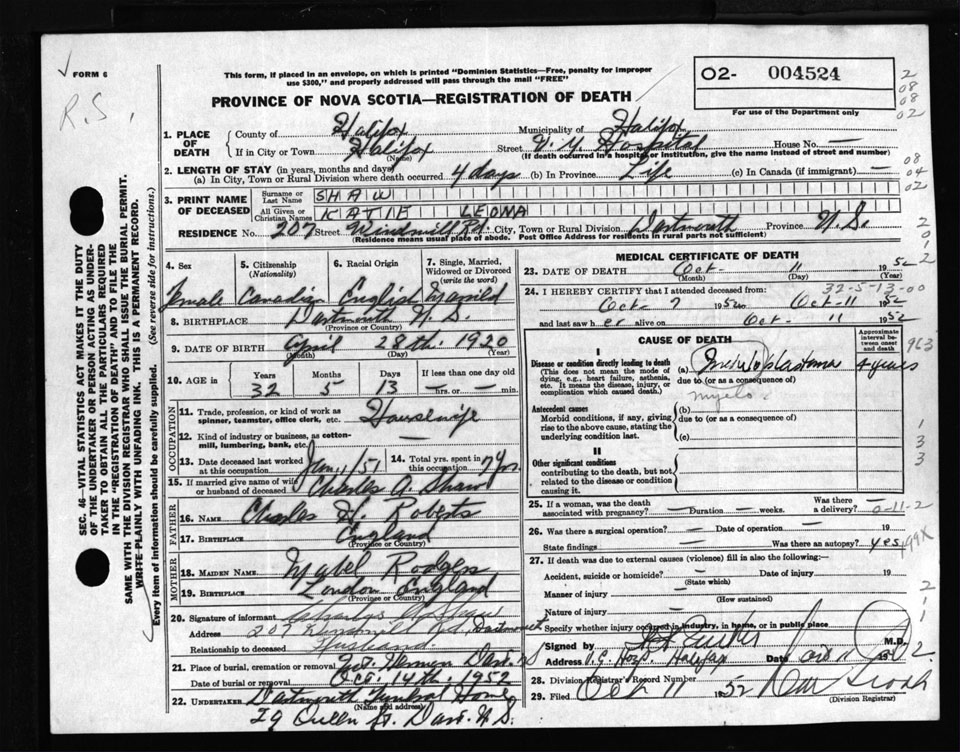 FORM 6
R.S.
This form, if placed in an envelope, on which is printed "Dominion Statistics—Free, penalty for improper
use $300," and properly addressed will pass through the mail "FREE"
O2- 004524
For use of the Department only
2
08
08
02
PROVINCE OF NOVA SCOTIA—REGISTRATION OF DEATH
1. PLACE OF DEATH
County of Halifax Municipality of Halifax
If in City or Town Halifax Street V. G. Hospital House No. —
(Name) (If death occurred in a hospital or institution, give the name instead of street and number)
2. LENGTH OF STAY (in years, months and days)
(a) In City, Town or Rural Division where death occurred 4 days (b) in Province Life (c) In Canada (if immigrant) —
08
04
02
3. PRINT NAME OF DECEASED
Surname or Last Name SHAW
All Given or Christian Names KATIE LEONA
RESIDENCE No. 207 Street Windmill Rd. City, Town or Rural Division Dartmouth Province N.S.
(Residence means usual place of abode. Post Office Address for residents in rural parts not sufficient)
2
0
1
2
SEC. 46—VITAL STATISTICS ACT MAKES IT THE DUTY
OF THE UNDERTAKER OR PERSON ACTING AS UNDER-
TAKER TO OBTAIN ALL THE PARTICULARS REQUIRED
IN THE "REGISTRATION OF DEATH" AND TO FILE THE
SAME WITH THE DIVISION REGISTRAR WHO SHALL ISSUE THE BURIAL PERMIT.
WRITE PLAINLY WITH UNFADING INK. THIS IS A PERMANENT RECORD.
Every item of information should be carefully supplied. (See reverse side for instructions.)
4. Sex
Female
5. Citizenship
(Nationality)
Canadian
6. Racial Origin
English
7. Single, Married, Widowed or Divorced
(write the word)
Married
8. BIRTHPLACE Dartmouth N.S.
(Province or Country)
9. DATE OF BIRTH April 28th. 1920
(Month) (Day) (Year)
10. AGE in Years Months Days If less than one day old
32 5 13 — hrs. or — min.
OCCUPATION
11. Trade, profession, or kind of work as
spinner, teamster, office clerk, etc. Housewife
12. Kind of industry or business, as cotton-
mill, lumbering, bank, etc. —
13. Date deceased last worked
at this occupation Jan. 1/51
14. Total yrs. spent in
this occupation 7 yrs.
15. If married give name of wife
or husband of deceased Charles A. Shaw
FATHER
16. NAME Charles H. Roberts
17. BIRTHPLACE England
(Province or Country)
MOTHER
18. MAIDEN NAME Mabel Rodgers
19. BIRTHPLACE London England
(Province or Country)
20. Signature of informant Charles A Shaw
Address 207 Windmill Rd. Dartmouth
Relationship to deceased Husband.
21. Place of burial, cremation or removal Mt. Hermon Dart. N.S
Date of burial or removal Oct. 14th. 1952
22. UNDERTAKER Dartmouth Funeral Home
(Name and address)
29 Queen St. Dart. N.S.
MEDICAL CERTIFICATE OF DEATH
23. DATE OF DEATH Oct. 11 1952
(Month) (Day) (Year)
32-5-13-00
24. I HEREBY CERTIFY that I attended deceased from:
Oct. 7 1952 to Oct. 11 1952
and last saw her alive on Oct. 11 1952
CAUSE OF DEATH
Approximate interval between onset and death
963
I
Disease or condition directly leading to death
(This does not mean the mode of
dying, e.g., heart failure, asthenia,
etc. It means the disease, injury, or
complication which caused death.)
(a) 4 years
due to (or as a consequence of)
myelo.
Antecedent causes
Morbid conditions, if any, giving
rise to the above cause, stating the
underlying condition last.
(b)
due to (or as a consequence of)
(c)
1
3
3
II
Other significant conditions
contributing to the death, but not
related to the disease or condition
causing it.
25. If a woman, was the death
associated with pregnancy? — Duration — weeks. Was there a delivery? —
0-11-2
26. Was there a surgical operation? — Date of operation — 19
State findings — Was there an autopsy? yes
27. If death was due to external causes (violence) fill in also the following:—
Accident, suicide or homicide? — Date of injury 19
(State which)
Manner of injury —
(How sustained)
Nature of injury —
Specify whether injury occurred in industry, in home, or in public place
2
1
1
2.
Signed by M.D.
Address V.G. Hosp. Halifax Date Oct 11 1952
28. Division Registrar's Record Number
29. Filed Oct 11 1952
(Division Registrar)